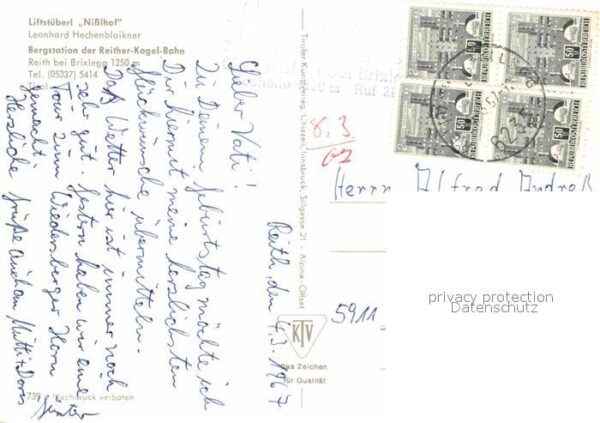 Liftstüberl „Nißlhof"
Leonhard Hechenbloikner
Bergstation der Reither-Kogel-Bahn
Reith bei Brixlegg 1250 m
Tel. (05337) 5414
Reith, den 4.3.1967
Lieber Vati!
Zu Deinem Geburtstag möchte ich
Dir hiermit meine herzlichsten
Glückwünsche übermitteln.
Das Wetter hier ist immer noch
sehr gut. Gestern haben wir eine
Tour zum Wiedersberger Horn
gemacht.
Herzliche Grüße auch an Mutti + Doris
739
Nachdruck verboten
Tiroler Kunstverlag Chizzali, Innsbruck, Sillgasse 21 - Alpina-Offset
KTV
Das Zeichen
für Qualität
8.3.
Herrn Alfred
5911
50
REPUBLIK ÖSTERREICH
50
REPUBLIK ÖSTERREICH
50
REPUBLIK ÖSTERREICH
50
REPUBLIK ÖSTERREICH
privacy protection
Datenschutz